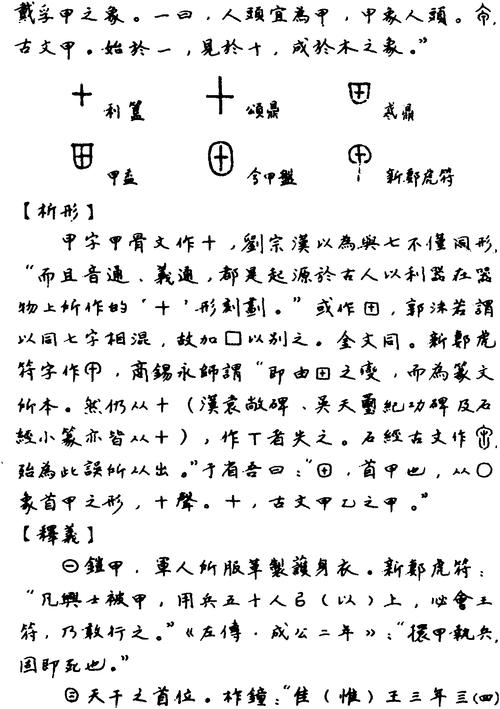 戴孚甲之象。一曰，人頭宜為甲，甲象人頭。命，
古文甲。始於一，見於十，成於木之象。”
利簋　頌鼎　鼎
甲盉　兮甲盤　新鄭虎符
【析形】
甲字甲骨文作十，劉宗漢以為與七不僅同形，
“而且音通、義通，都是起源於古人以利器在器
物上所作的‘十’形刻劃。”或作田，郭沫若謂
以同七字相混，故加囗以別之。金文同。新鄭虎
符字作甲，商錫永師謂“即由田之變，而為篆文
所本。然仍从十（漢袁敞碑、吴天璽紀功碑及石
經小篆亦皆从十），作丁者失之。石經古文作，
殆為此誤所从出。”于省吾曰：“田，首甲也，从〇
象首甲之形，十聲。十，古文甲乙之甲。”
【釋義】
㊀鎧甲，軍人所服革製護身衣。新鄭虎符：
“凡興士被甲，用兵五十人㠯（以）上，必會王
符，乃敢行之。”《左傳·成公二年》：“擐甲執兵，
固即死也。”
㊁天干之首位。柞鐘：“隹（惟）王三年三(四)